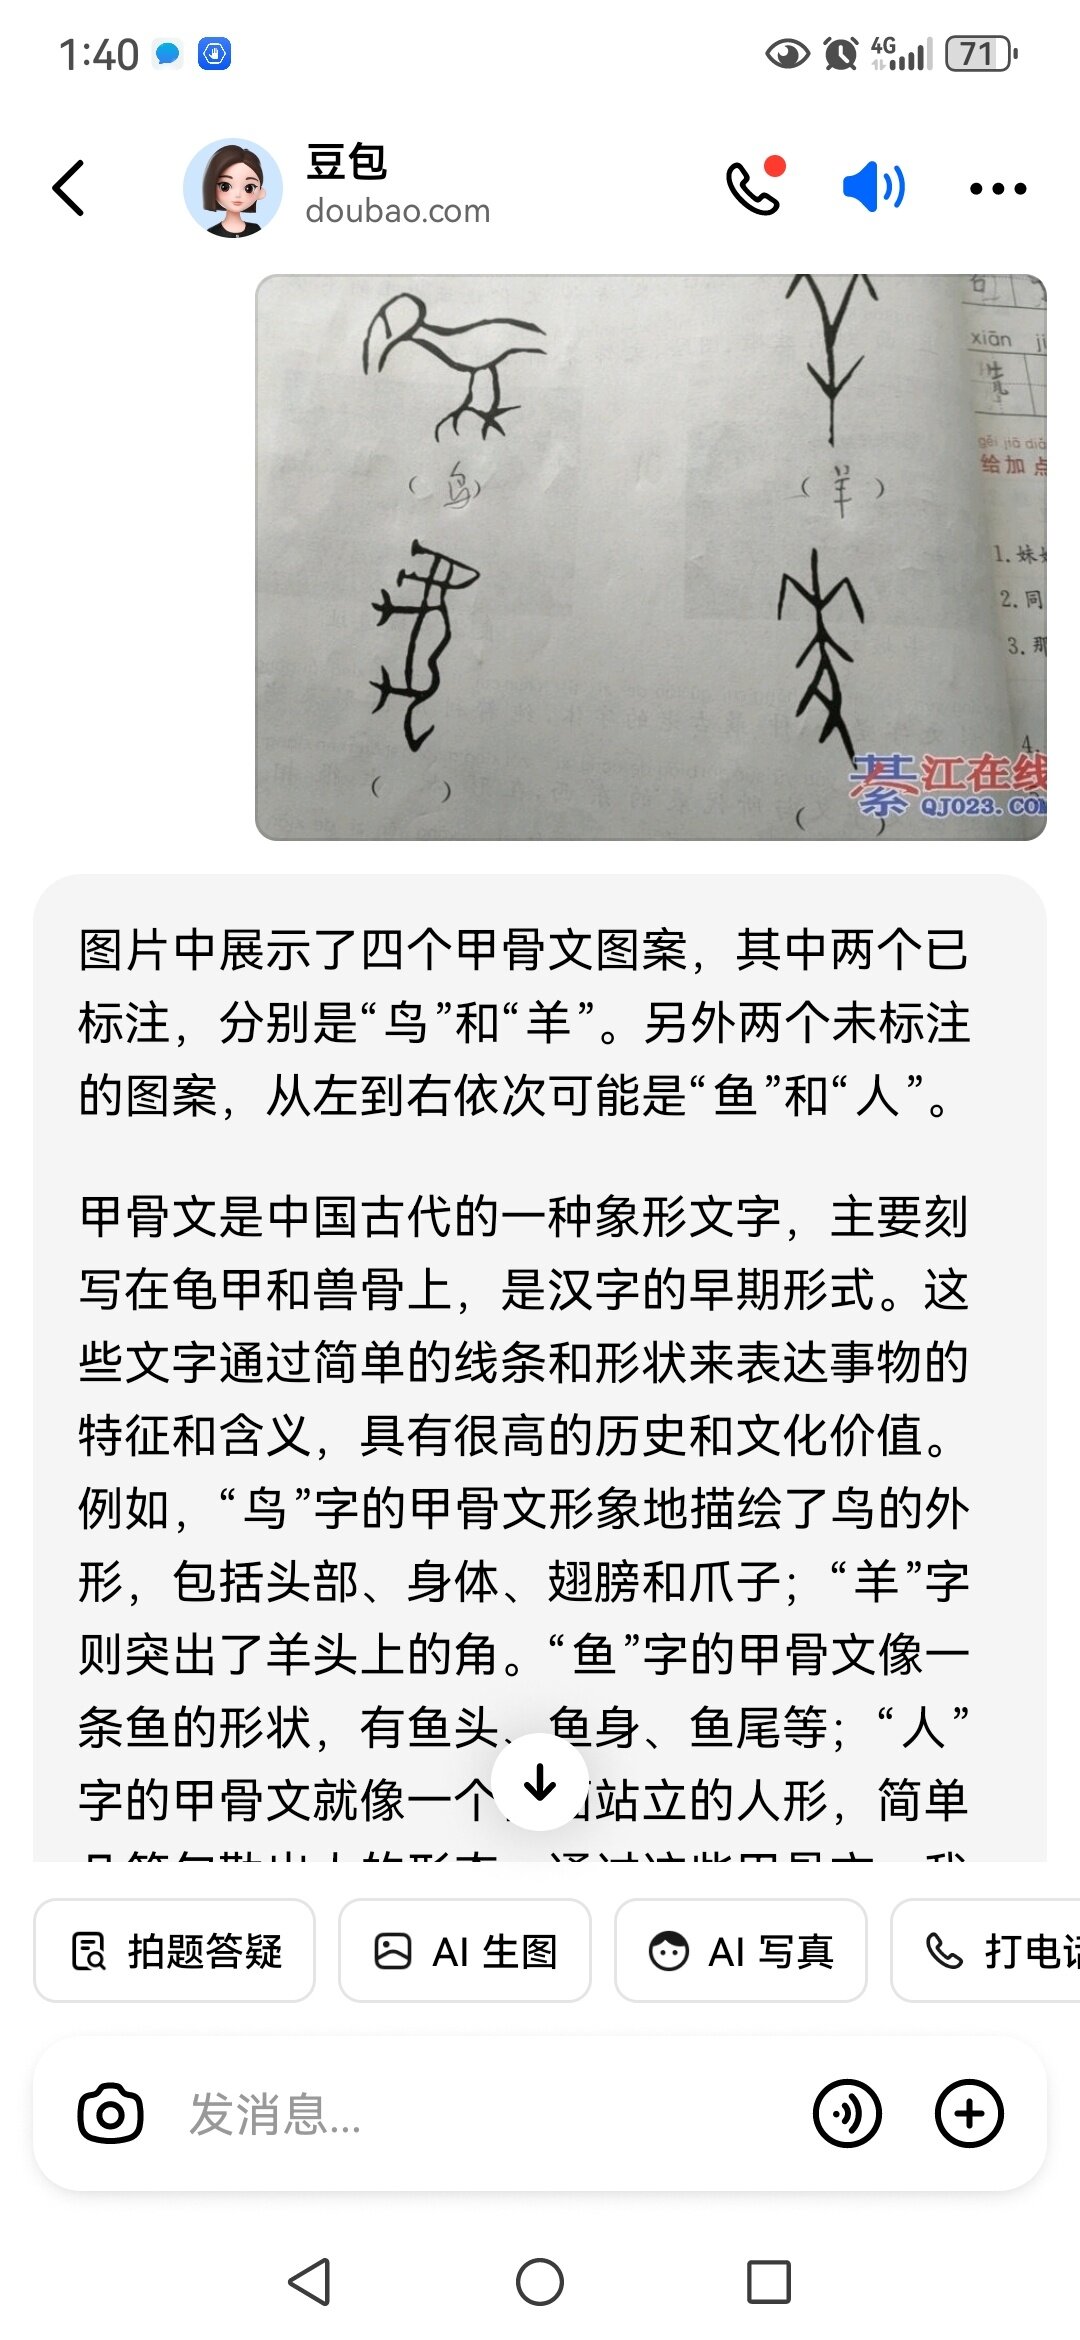 1:40
4G
71
豆包
doubao.com
xiān
gěi jiā diǎ
给加点
(鸟)
(羊)
1.妹
2.同
3.那
4.
( )
( )
綦江在线
QJ023.COM
图片中展示了四个甲骨文图案，其中两个已
标注，分别是“鸟”和“羊”。另外两个未标注
的图案，从左到右依次可能是“鱼”和“人”。
甲骨文是中国古代的一种象形文字，主要刻
写在龟甲和兽骨上，是汉字的早期形式。这
些文字通过简单的线条和形状来表达事物的
特征和含义，具有很高的历史和文化价值。
例如，“鸟”字的甲骨文形象地描绘了鸟的外
形，包括头部、身体、翅膀和爪子；“羊”字
则突出了羊头上的角。“鱼”字的甲骨文像一
条鱼的形状，有鱼头、鱼身、鱼尾等；“人”
字的甲骨文就像一个站立的人形，简单
拍题答疑
AI 生图
AI 写真
打电话
发消息...